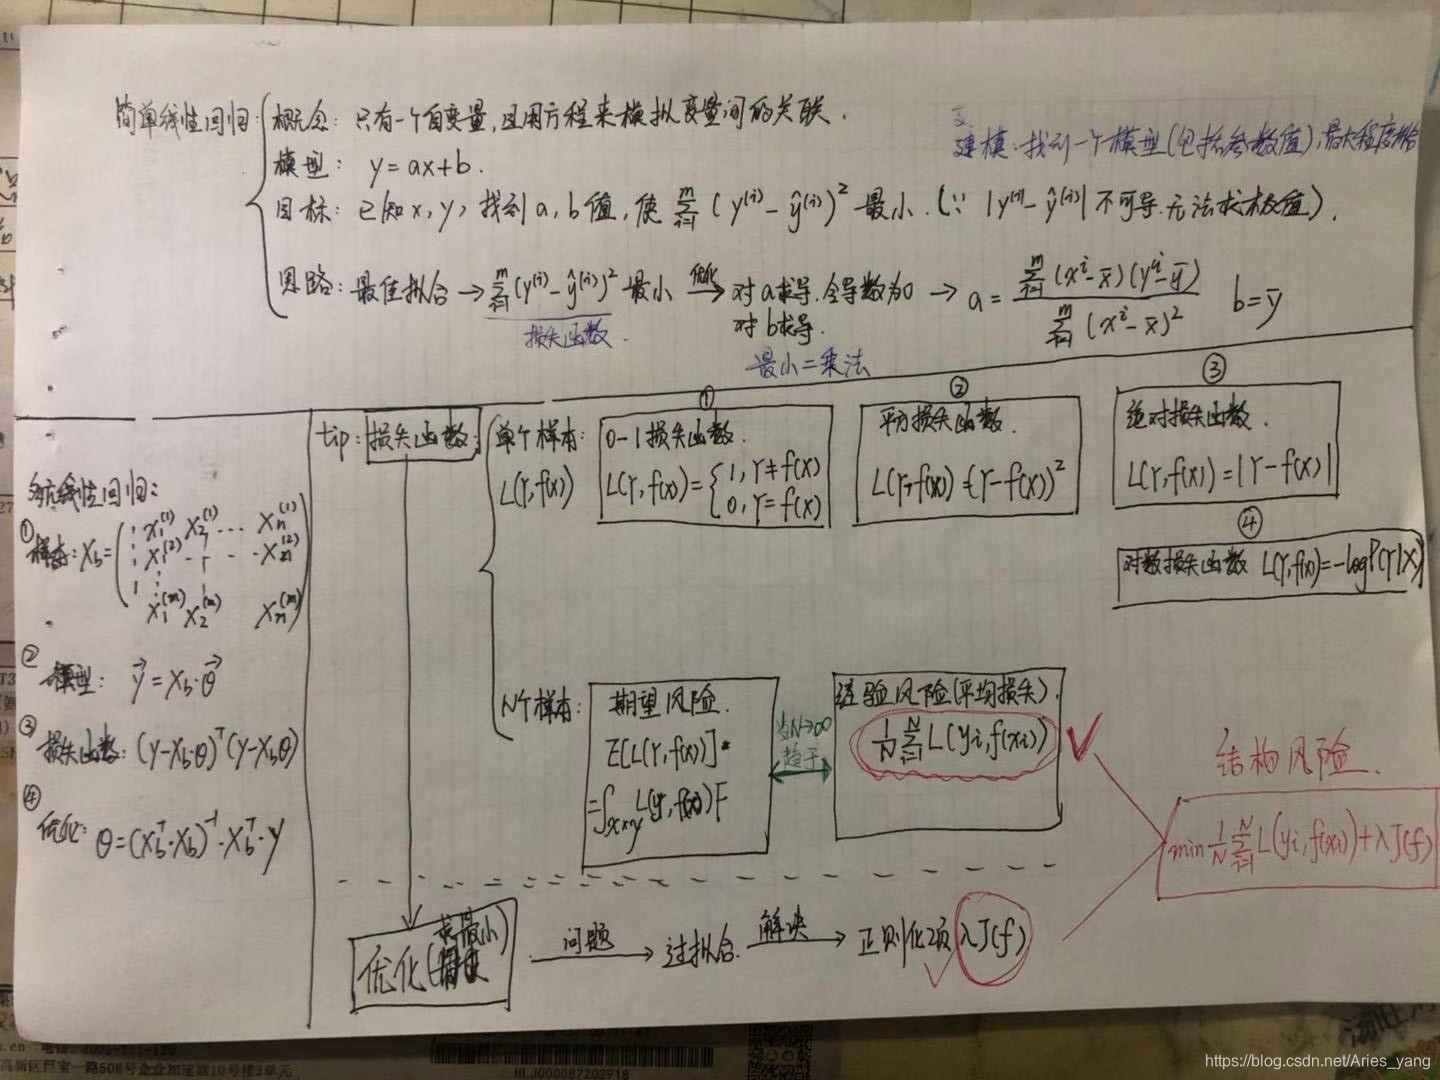 简单线性回归:
概念: 只有一个自变量,且用方程来模拟变量间的关联.
模型: y=ax+b.
目标: 已知x,y,找到a,b值,使 \sum_{i=1}^{m}(y^{(i)}-ŷ^{(i)})² 最小.(∵ |y^{(i)}-ŷ^{(i)}| 不可导.无法求极值).
思路: 最佳拟合→ \sum_{i=1}^{m}(y^{(i)}-ŷ^{(i)})² 最小 优化→ 对a求导.令导数为0 → a= \frac{\sum_{i=1}^{m}(x^i-x̄)(y^i-ȳ)}{\sum_{i=1}^{m}(x^i-x̄)²} b=ȳ
对b求导.
损失函数.
最小二乘法
建模:找到一个模型(包括参数值),最大程度
多元线性回归:
①
样本: X_b=( 1 X_1^{(1)} X_2^{(1)} … X_n^{(1)}
1 X_1^{(2)} … X_n^{(2)}
X_1^{(m)} X_2^{(m)} X_n^{(m)} )
②
模型: y⃗=X_b·θ⃗
③
损失函数: (y-X_bθ)^T(y-X_bθ)
④
优化: θ=(X_b^T·X_b)^{-1}·X_b^T·y
tip: 损失函数:
单个样本:
L(Y,f(X))
①
0-1损失函数.
L(Y,f(X))={1, Y≠f(X)
0, Y=f(X)
②
平方损失函数.
L(Y,f(X))=(Y-f(X))²
③
绝对损失函数.
L(Y,f(X))=|Y-f(X)|
④
对数损失函数 L(Y,f(X))=-logP(Y|X)
N个样本:
期望风险.
E[L(Y,f(X))]
=∫_{x×y}L(y,f(x))F
当N→∞
趋于
经验风险(平均损失).
\frac{1}{N}\sum_{i=1}^{N}L(y_i,f(x_i))
结构风险.
min \frac{1}{N}\sum_{i=1}^{N}L(y_i,f(x_i))+λJ(f)
优化(最小)
问题
过拟合.
解决
正则化项 λJ(f)
高新区巨宝一路508号企业加速器10号楼3单元
HLJ000087202918
https://blog.csdn.net/Aries_yang